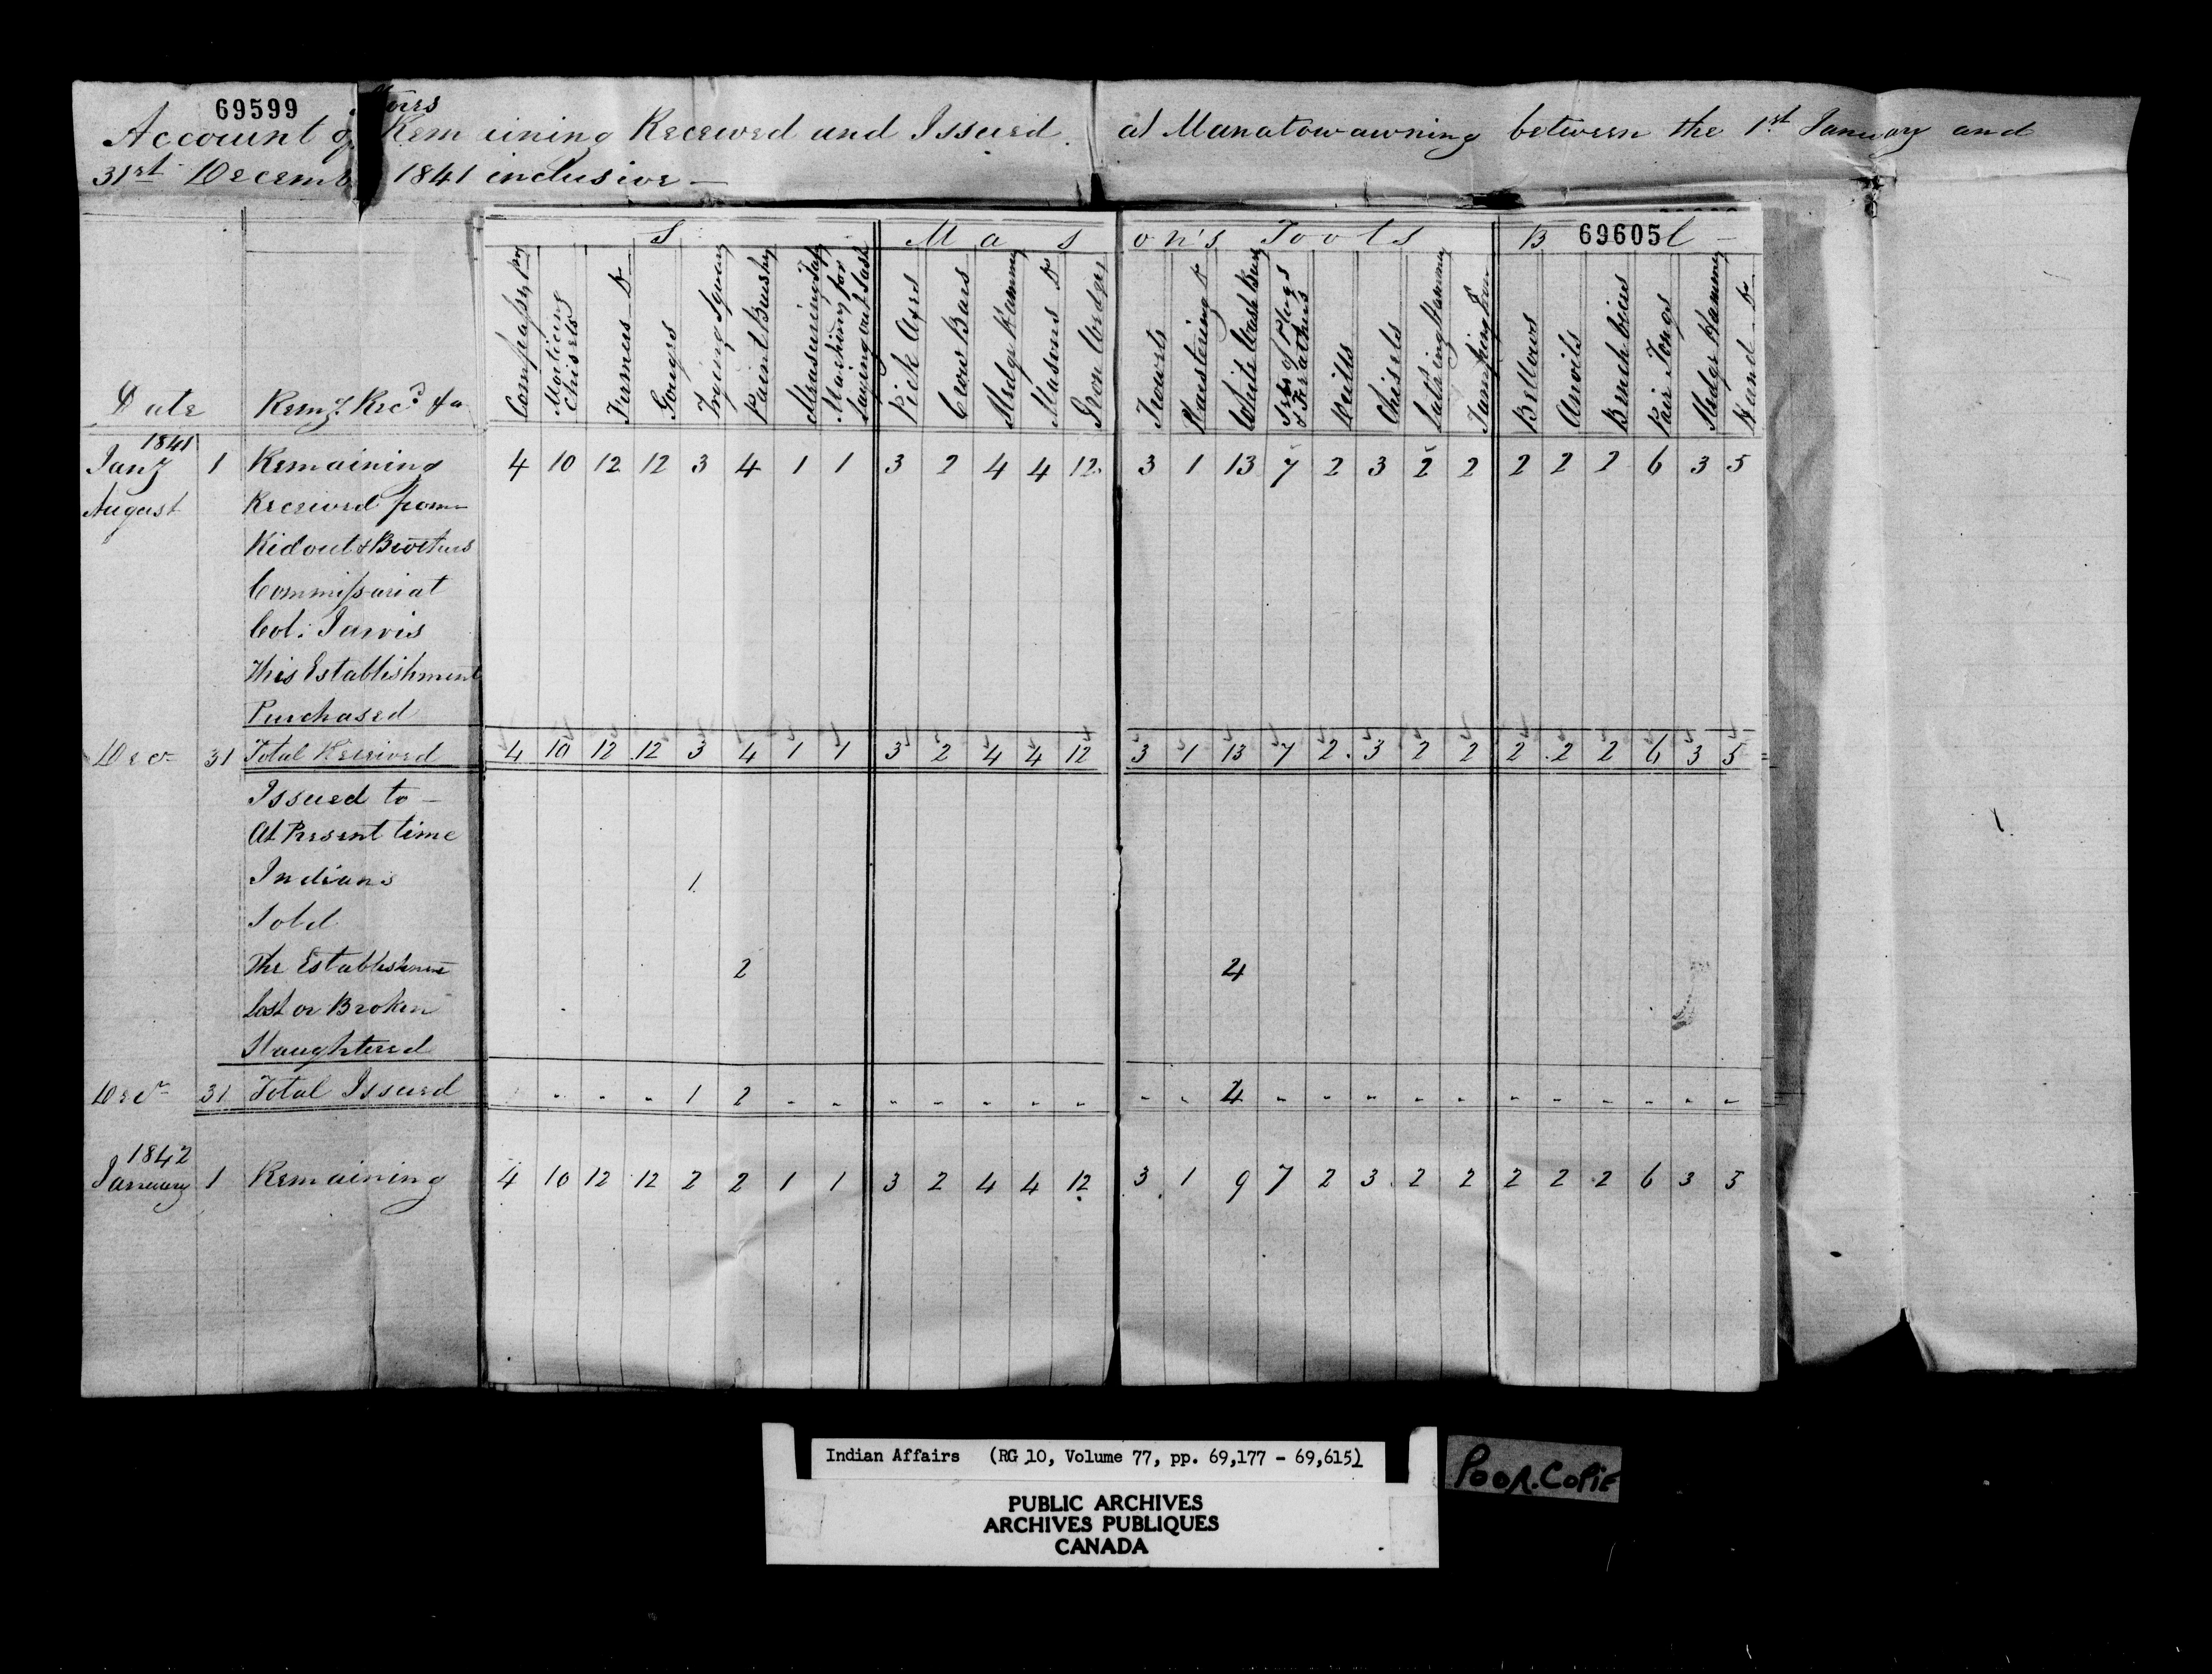 69599
Stores
Account of Remaining Received and Issued at Manatowawning between the 1st January and
31st Decemb 1841 inclusive —
S M a s on's Tools B 69605 l —
Date Remg Recd &a
Compasses prs
Morticing Chisels
Firmers Do
Gouges
Trying Squares
Paint Brushes
Measuring Tape
Machines for Laying out Sash
Pick Axes
Crow Bars
Sledge Hammers
Masons Do
Iron Wedges
Trowels
Plaistering Do
White Wash Brushes
Sets of Plugs & Feathers
Drills
Chisels
Lathing Hammers
Tamping Iron
Bellows
Anvils
Bench Vices
Pair Tongs
Sledge Hammers
Hand Do
1841
Jany 1 Remaining 4 10 12 12 3 4 1 1 3 2 4 4 12 3 1 13 7 2 3 2 2 2 2 2 6 3 5
August Received from
Ridout & Brothers
Commissariat
Col: Jarvis
This Establishment
Purchased
Decr 31 Total Received 4 10 12 12 3 4 1 1 3 2 4 4 12 3 1 13 7 2 3 2 2 2 2 2 6 3 5
Issued to —
At Present time
Indians 1
Sold
The Establishment 2 4
Lost or Broken
Slaughtered
Decr 31 Total Issued - - - 1 2 - - - - - - - - - 4 - - - - - - - - - - -
1842
January 1 Remaining 4 10 12 12 2 2 1 1 3 2 4 4 12 3 1 9 7 2 3 2 2 2 2 2 6 3 5
Indian Affairs (RG 10, Volume 77, pp. 69,177 - 69,615)
POOR.COPIE
PUBLIC ARCHIVES
ARCHIVES PUBLIQUES
CANADA